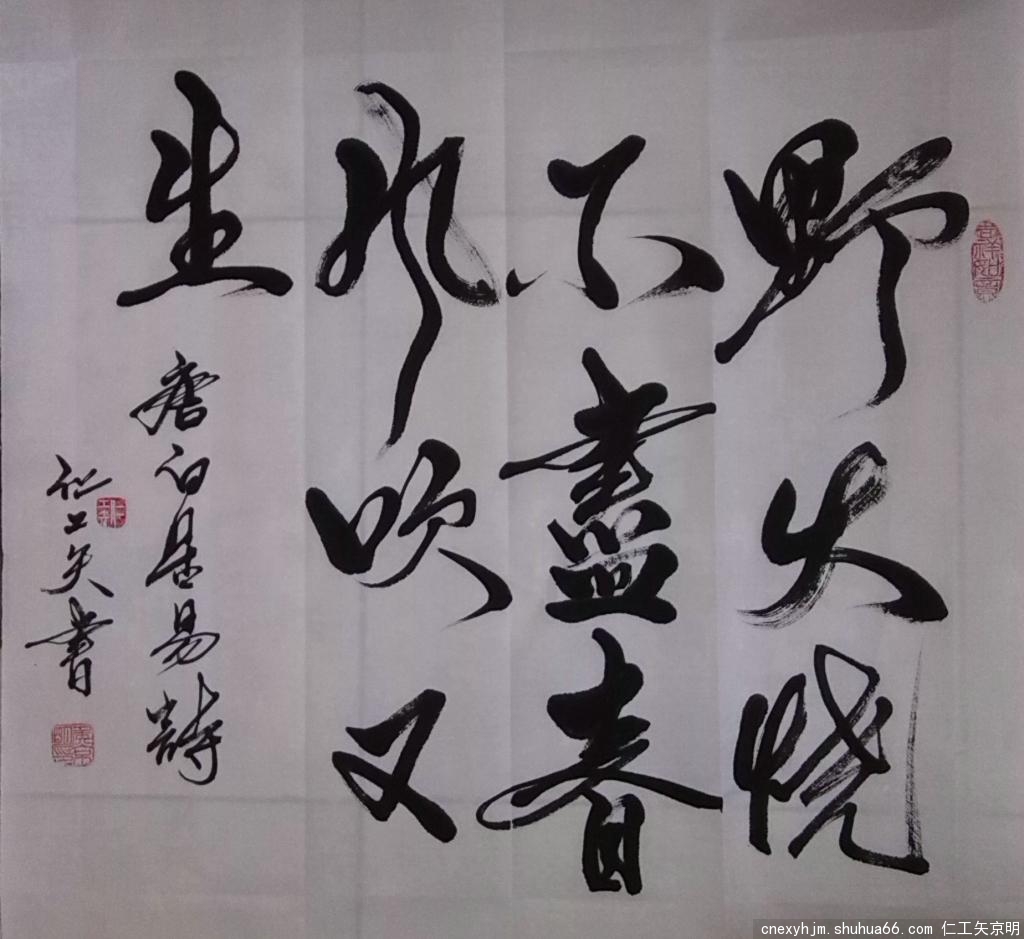 野火烧
不盡春
风吹又
生
唐白居易詩
仁工矢書
cnexyhjm.shuhua66.com 仁工矢京明